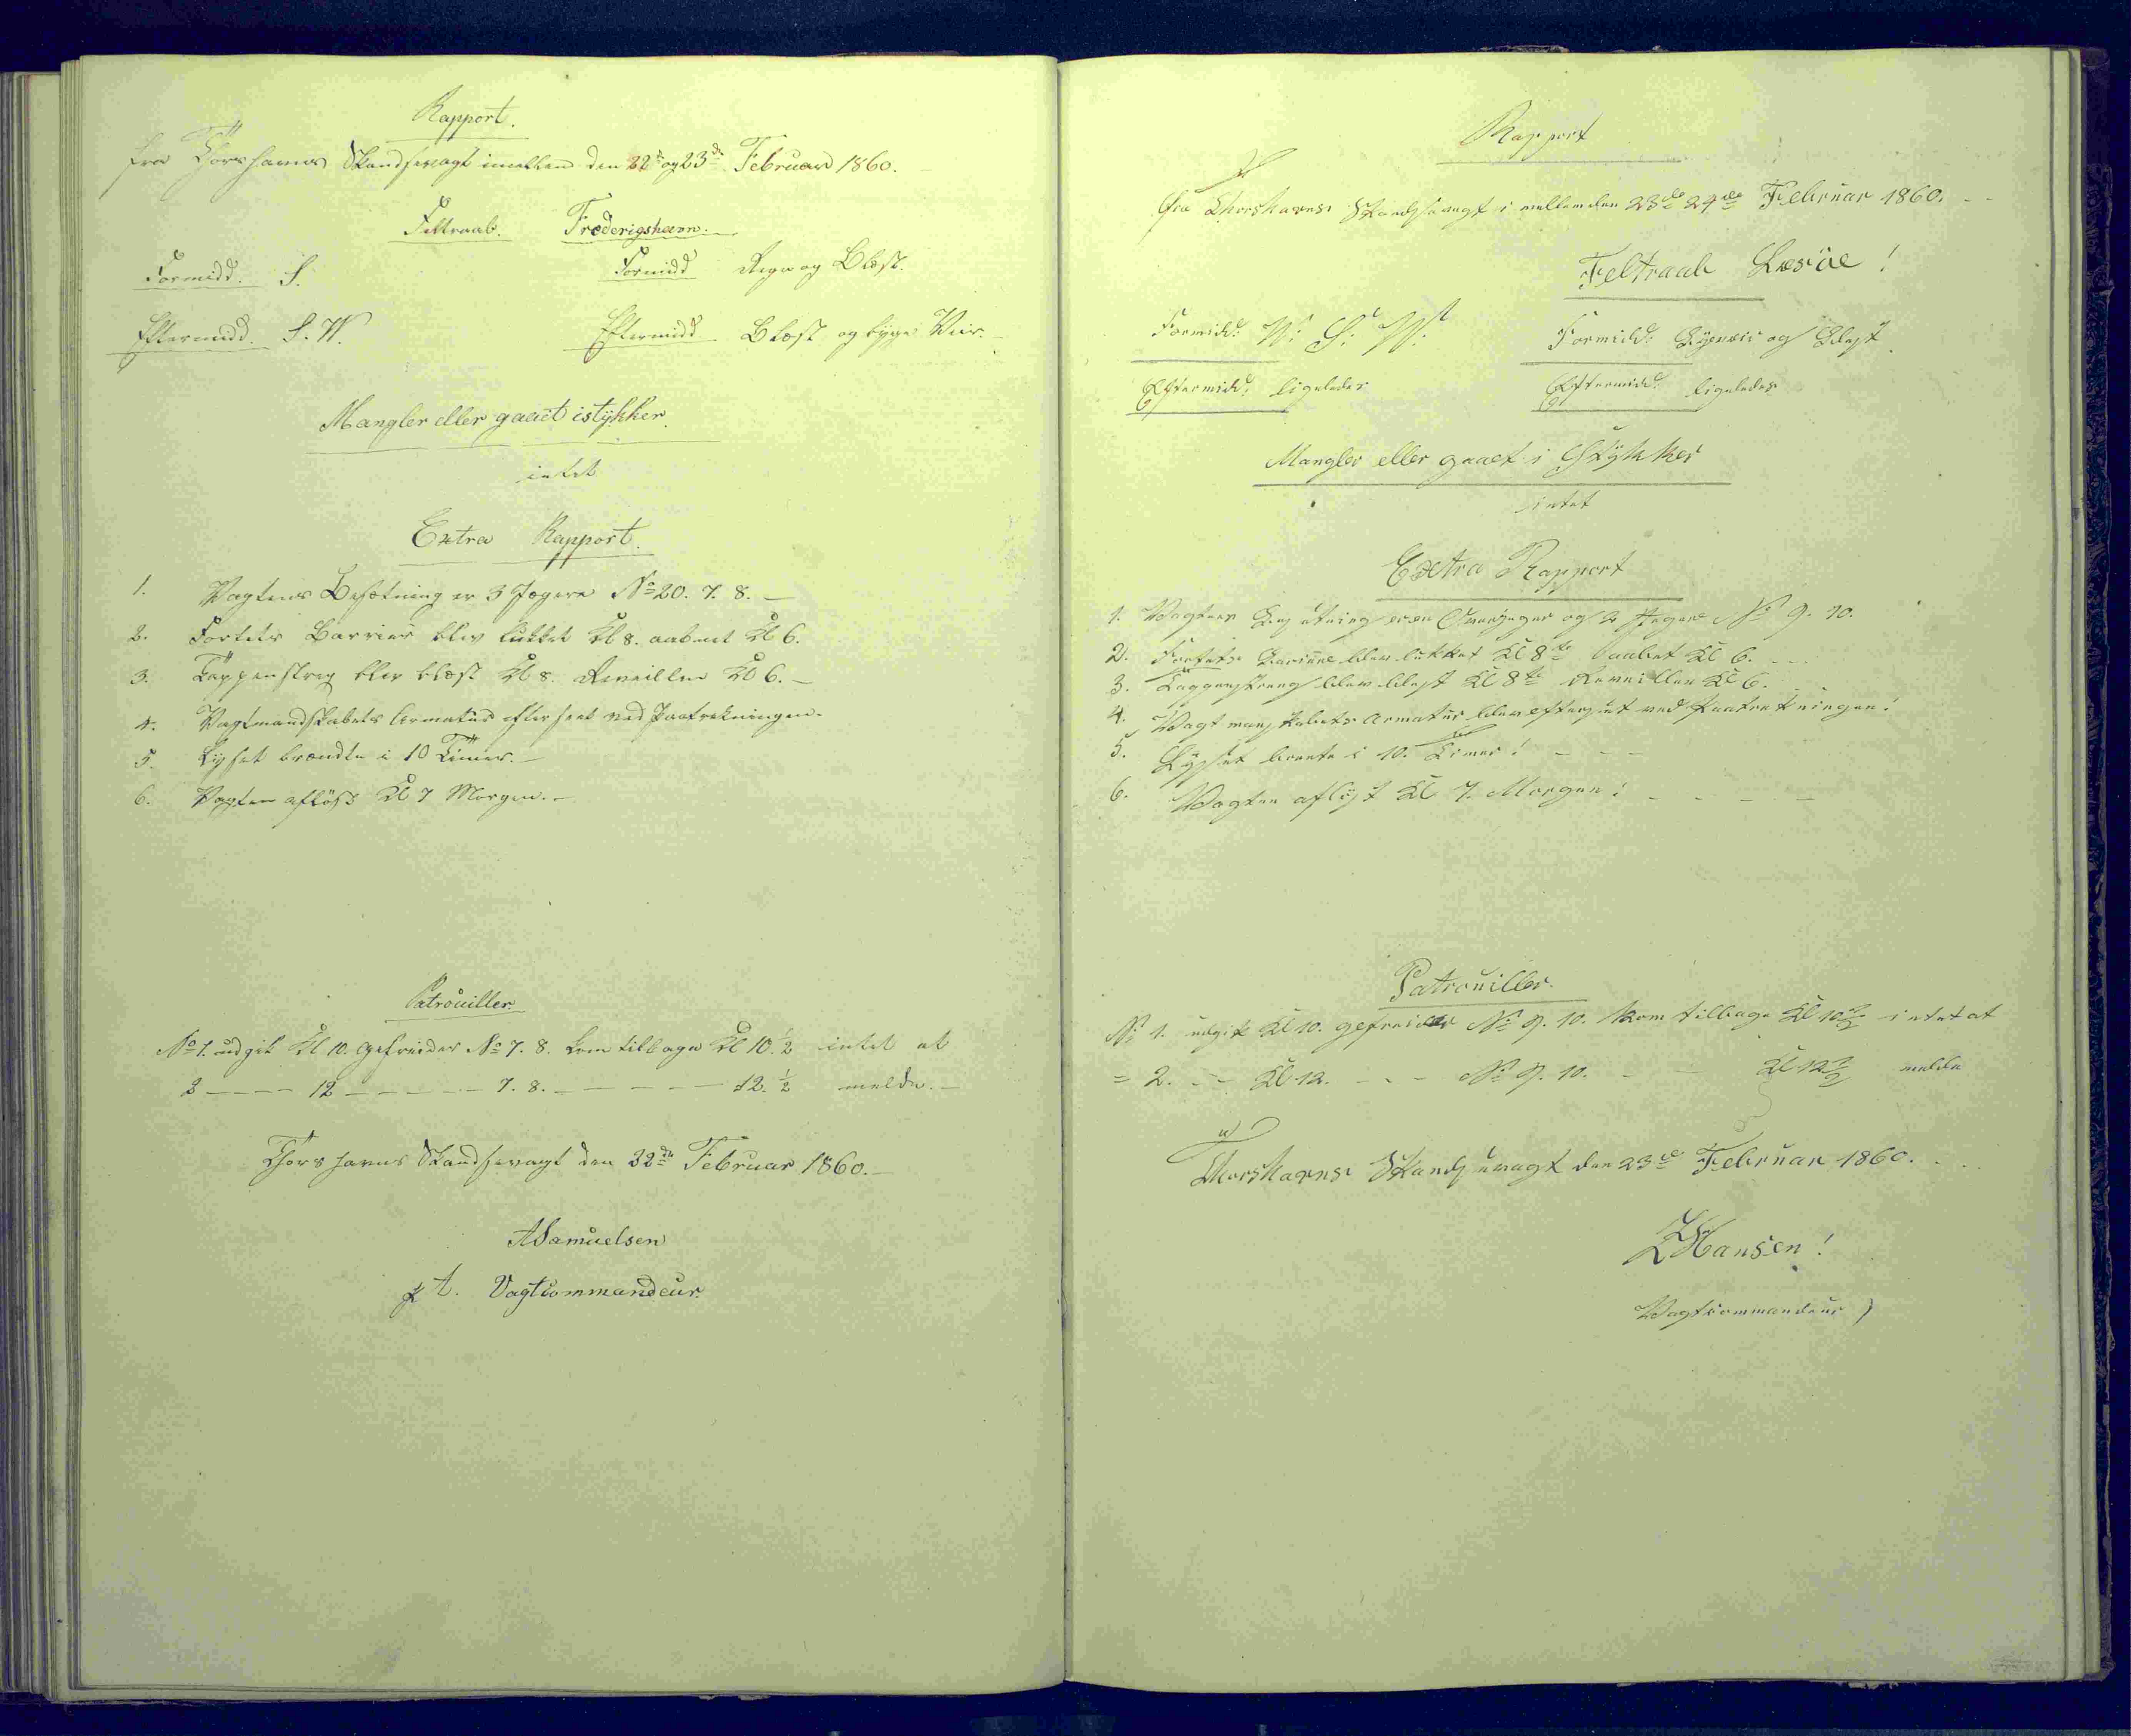 Rapport.
fra Thorshavns Skandsevagt imellem den 22de og 23de Februar 1860.
Feltraab. Frederigshavn.
Formidd. S. Formidd Regn og Blæst.
Eftermidd. S. W. Eftermidd Blæst og byge Veir.
Mangler eller gaaet istÿkker.
intet
Extra Rapport.
1. Vagtens Besætning er 3 Jægere No 20. 7. 8. —
2. Fortets Barriere blev lukket Kl 8. aabnet Kl 6.
3. Tappenstreg blev blæst Kl 8. Reveillen Kl 6. —
4. Vagtmandskabets Armatur efterseet ved Paatrekningen.
5. Lyset brændte i 10 Timer. —
6. Vagten afløst Kl 7 Morgen. —
Patrouiller.
No 1. udgik Kl 10. Gefreider No 7. 8. kom tilbage Kl 10. ½ intet at
2 — — — 12 — — — — 7. 8. — — — — — 12. ½ melde. —
Thorshavns Skandsevagt den 22de Februar 1860. —
ASamuelsen
p t. Vagtcommandeur.
Rapport
fra Thorshavns Skandsevagt i mellem den 23de 24de Februar 1860.
Feltraab Læsöe !
Formidd: W: S: W: Formidd: Bygeveir og Blæst
Eftermidd: ligeledes Eftermidd: ligeledes
Mangler eller gaaet i Stÿkker
intet
Extra Rapport
1. Vagtens Besætning er en Overjæger og 2 Jægere No 9. 10.
2. Fortets Bariere blev lukket Kl 8te aabet Kl 6.
3. Tappenstreeg blev blest Kl 8te Reveillen Kl 6.
4. Vagt manskabets Armatur blev efterset ved Paatrekningen!
5. Lyset brente i 10. Timer! — — —
6. Vagten afløst Kl 7. Morgen! — — — —
Patrouiller.
No 1. udgik Kl 10. gefreider No 9. 10. kom tilbage Kl 10½ intet at
= 2. — — Kl 12. — — — No 9. 10. — — Kl 12½ melde
Thorshavns Skandsevagt den 23de Februar 1860.
ZHansen !
Vagtcommandeur